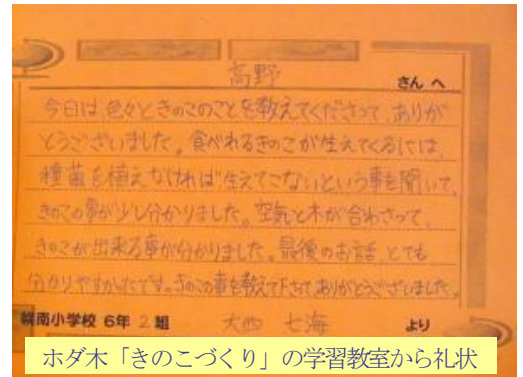 高野 さんへ
今日は、色々ときのこのことを教えてくださって、ありが
とうございました。食べれるきのこが生えてくるには、
種菌を植えなければ生えてこないという事を聞いて、
きのこの事が少し分かりました。空気と木が合わさって、
きのこが出来る事が分かりました。最後のお話、とても
分かりやすかったです。きのこの事を教えて下さて、ありがとうございました。
幌南小学校 6年 2 組 大西 七海 より
ホダ木「きのこづくり」の学習教室から礼状